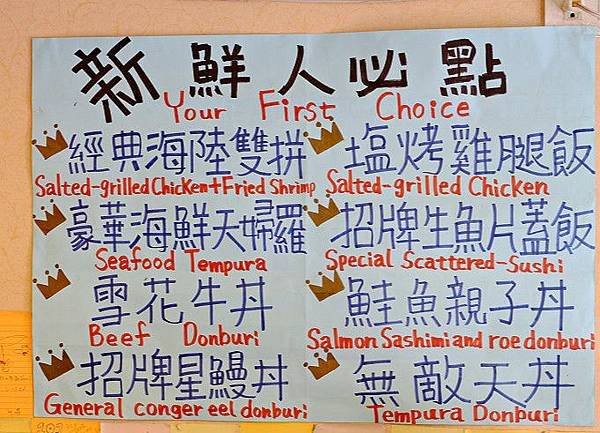 新鮮人必點
Your First Choice
經典海陸雙拼
Salted-grilled Chicken+Fried Shrimp
塩烤雞腿飯
Salted-grilled Chicken
豪華海鮮天婦羅
Seafood Tempura
招牌生魚片蓋飯
Special Scattered-Sushi
雪花牛丼
Beef Donburi
鮭魚親子丼
Salmon Sashimi and roe donburi
招牌星鰻丼
General conger eel donburi
無敵天丼
Tempura Donburi